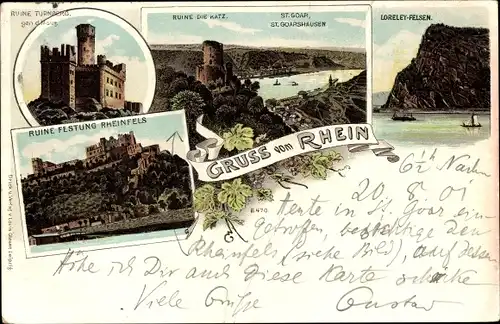 RUINE TURNBERG.
gen. d. Maus.
RUINE DIE KATZ.
ST. GOAR.
ST. GOARSHAUSEN
LORELEY-FELSEN.
RUINE FESTUNG RHEINFELS
GRUSS vom RHEIN
6 1/2 h Nachm
20.8.01
Heute in St. Goar ein-
getroffen, besichtige den
Rheinfels (siehe Bild), auf dessen
Höhe ich Dir auch diese Karte schicke
Viele Grüße Gustav